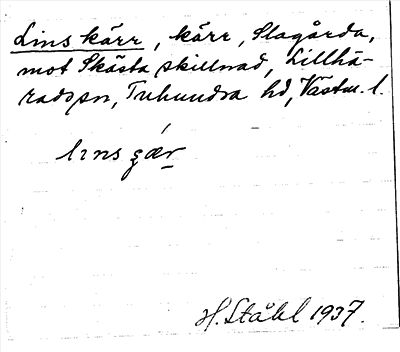 Lins kärr, kärr, Slagårda,
mot Skästa skillnad, Lillhä-
radspn, Tuhundra hd, Västm. l.
lɪns çær
H. Ståhl 1937.